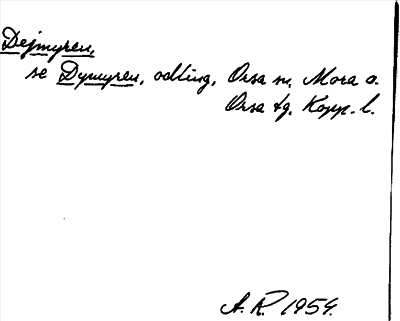 Dejmyren,
se Dymyren, odling, Orsa sn, Mora o.
Orsa tg, Kopp. l.
A. R. 1959.